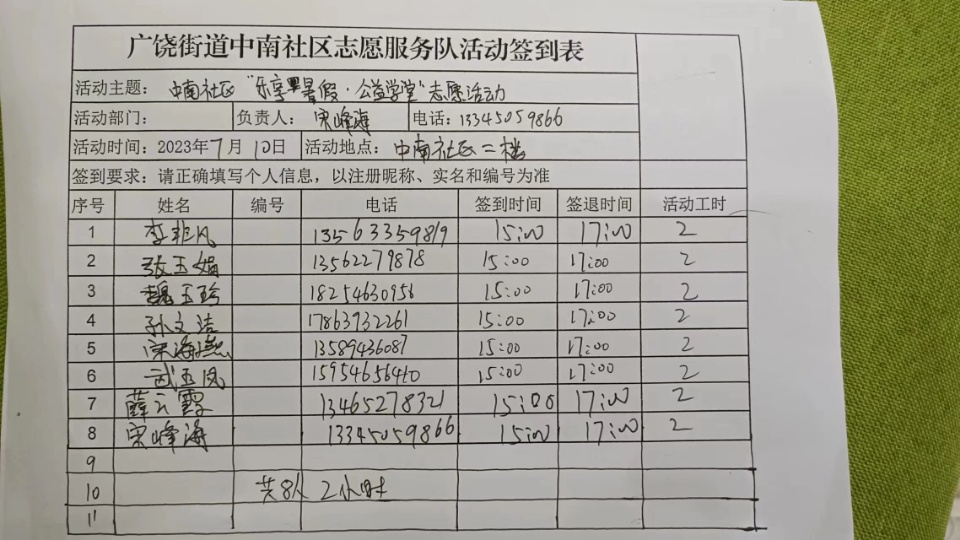 广饶街道中南社区志愿服务队活动签到表
活动主题: 中南社区“乐享暑假·公益学堂”志愿活动
活动部门: 负责人: 宋峰海 电话: 13345059866
活动时间: 2023年7月10日 活动地点: 中南社区二楼
签到要求: 请正确填写个人信息，以注册昵称、实名和编号为准
序号 姓名 编号 电话 签到时间 签退时间 活动工时
1 李非凡 13563359819 15:00 17:00 2
2 张玉娟 13562279878 15:00 17:00 2
3 魏玉玲 18254630956 15:00 17:00 2
4 孙文洁 17863932261 15:00 17:00 2
5 宋海燕 13589436087 15:00 17:00 2
6 武玉凤 15954656410 15:00 17:00 2
7 薛云霞 13465278321 15:00 17:00 2
8 宋峰海 13345059866 15:00 17:00 2
9
10 共8人 2小时
11